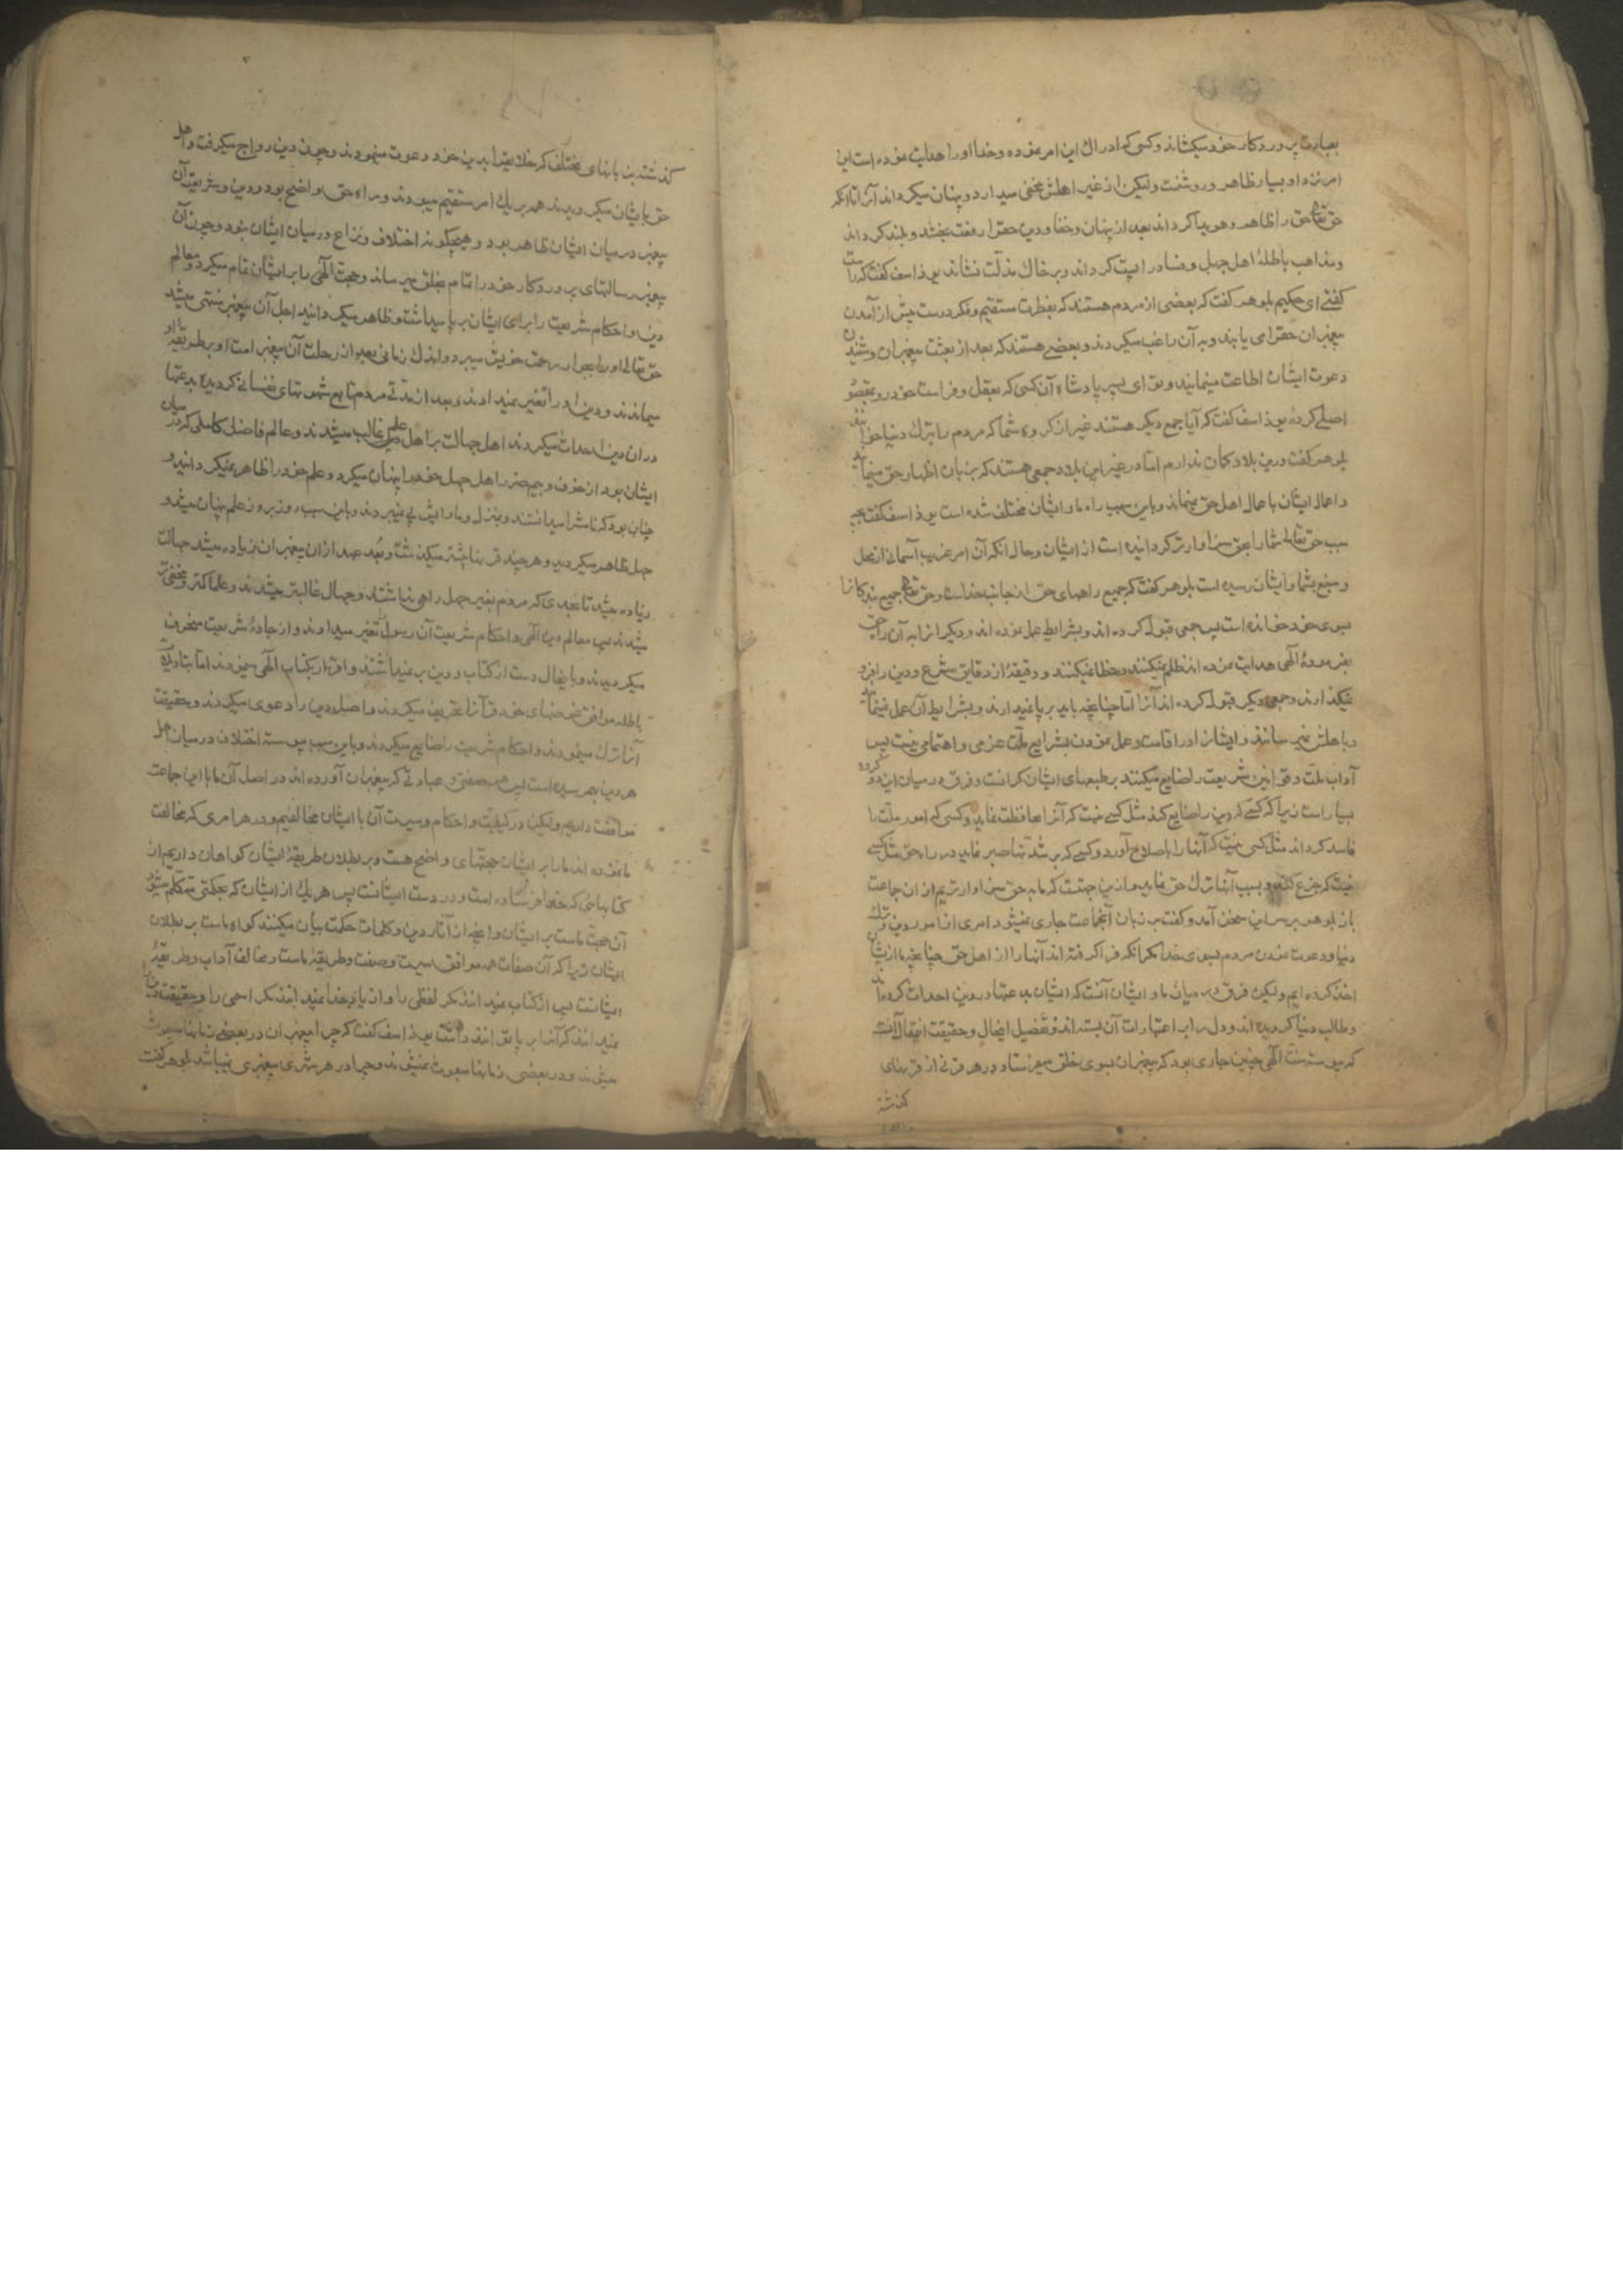 بعبارت پروردکار خود میکشاند و کسی که ادراك این امر نموده و خدا او را هدایت نموده است این
امر نزد او بسیار ظاهر و روشنست ولیکن از غیر اهلش مخفی میدارد و پنهان میکرداند آنرا تا انکه
حق تعالی حق را ظاهر و هویدا کرداند بعد از پنهان و خفا و دین حقرا رفعت بخشد و بلند کرداند
و مذاهب باطلهٔ اهل جهل و فساد را پست کرداند و بر خاك مذلت نشاند یوذاسف کفت که راست
کفتی ای حکیم بلوهر کفت که بعضی از مردم هستند که بفطرت مستقیم و فکر درست پیش از آمدن
پیغمبران حقرا می یابند و به آن راغب میکردند و بعضے هستند که بعد از بعثت پیغمبران و شنیدن
دعوت ایشان اطاعت مینمایند و تو ای پسر پادشاه آن کسی که بعقل و فراست خود رو بمقصود
اصلے کردهٔ یوذاسف کفت که آیا جمع دیکر هستند غیر از کروه شما که مردم را بترك دنیا خوانند
بلوهر کفت درین بلاد کمان ندارم اما در غیر این بلاد جمعی هستند که بزبان اظهار حق مینمایند
و اعمال ایشان باعمال اهل حق نمیماند و باین سبب راه ما و ایشان مختلف شده است یوذاسف کفت بچه
سبب حق تعالی شما را بحق سزاوارتر کردانیده است از ایشان و حال انکه آن امر غریب آسمانی از محل
و منبع بشما و ایشان رسیده است بلوهر کفت که جمیع راههای حق از جانب خداست و حق تعالی جمیع بندکانرا
بسوی خود خوانده است پس جمعی قبول کرده اند و بشرایط عمل نموده اند و دیکرانرا به آن راه حق
بفرمودهٔ الهی هدایت نموده اند ظلم نمیکنند و خطا نمیکنند و دقیقهٔ از دقایق شرع و دین را فرو
نمیکذارند و جمعی دیکر قبول کرده اند آنرا اما چنانچه باید بر پا نمیدارند و بشرایط آن عمل نمینمایند
و باهلش نمیرسانند و ایشانرا در اقامت و عمل نمودن بشرایع ملت عزمی و اهتمامی نیست پس
آداب ملت و قوانین شریعت را ضایع میکنند بر طبعهای ایشان کرانست و فرق در میان این دو کروه
بسیار است زیرا که کسے که دین را ضایع کند مثل کسے نیست که آنرا محافظت نماید و کسی که امور ملت را
فاسد کرداند مثل کسی نیست که آنها را باصلاح آورد و کسے که بر شدتها صبر نماید در راه حق مثل کسے
نیست که جزع کند و بسبب آنها ترك حق نماید و ازین جهتست که ما به حق سزاوارتریم از ان جماعت
باز بلوهر بر سر این سخن آمد و کفت بر زبان آنجماعت جاری نمیشود امری از امور دین و ترك
دنیا و دعوت نمودن مردم بسوی خدا مکر انکه فرا کرفته اند آنها را از اهل حق چنانچه ما از ایشان
اخذ کرده ایم ولیکن فرق در میان ما و ایشان آنست که ایشان بدعتها در دین احداث کرده اند
و طالب دنیا کردیده اند و دل را بر اعتبارات آن بسته اند و تفصیل اینحال و حقیقت انمقال آنست
که پیوسته سنت الهی چنین جاری بود که پیغمبران بسوی خلق میفرستاد در هر قرنی از قرنهای
کذشته
کذشته بزبانهای مختلف که خلایق را بدین خود دعوت مینمودند و چون دین رواج میکرفت و اهل
حق بایشان میکرویدند همه بر یك امر مستقیم میبودند و راه حق واضح بود و دین و شریعت آن
پیغمبر در میان ایشان ظاهر بود و هیچکونه اختلاف و نزاع در میان ایشان نبود و چون آن
پیغمبر رسالتهای پروردکار خود را تمام بخلق میرساند و حجت الهی را بر ایشان تمام میکرد و معالم
دین و احکام شریعت را برای ایشان بر پا میداشت و ظاهر میکردانید اجل آن پیغمبر منتهی میشد
حق تعالی او را بجوار رحمت خویش میبرد و اندك زمانی بعد از رحلت آن پیغمبر امت او بر طریقهٔ او
میماندند و دین او را تغییر نمیدادند و بعد از مدتے مردم تابع شهوتهای نفسانی کردیده بدعتها
در ان دین احداث میکردند اهل جهالت بر اهل علم غالب میشدند و عالم فاضل کاملی که در میان
ایشان بود از خوف و بیم ضرر اهل جهل خود را پنهان میکرد و علم خود را ظاهر نمیکردانید و
چنان بود که نامش را میدانستند و بمنزل و ماوایش پی نمیبردند و باین سبب روز بروز علم پنهان میشد و
جهل ظاهر میکردید و هر چند قرنها بیشتر میکذشت و بعد عهد از ان پیغمبران زیاده میشد جهالت
زیاده میشد تا بحدی که مردم بغیر جهل راهی نداشتند و جهال غالبتر میشدند و علما کمتر و مخفی تر
میشدند پس معالم دین الهی و احکام شریعت آن رسول تغییر میدادند و از جادهٔ شریعت منحرف
میکردیدند و با اینحال دست از کتاب و دین بر نمیداشتند و اقرار بکتاب الهی مینمودند اما بتاویلهای
باطله موافق غرضهای خود قرآنرا تحریف میکردند و اصل دین را دعوی میکردند و حقیقت
آنرا ترك مینمودند و احکام شریعت را ضایع میکردند و باین سبب پیوسته اختلاف در میان اهل
هر دین بهم رسیده است پس هر صفتی و عبادتے که پیغمبران آورده اند در اصل آن ما با این جماعت
موافقت داریم ولیکن در کیفیت و احکام و سیرت آن با ایشان مخالفیم و در هر امری که مخالفت
ما نموده اند ما را بر ایشان حجتهای واضح هست و بر بطلان طریقهٔ ایشان کواهان داریم از
کتابهائی که خدا فرستاده است و در دست ایشانست پس هر یك از ایشان که بحکمتی متکلم میشود
آن حجت ماست بر ایشان و انچه از آثار دین و کلمات حکمت بیان میکنند کواه ماست بر بطلان
ایشان زیرا که آن صفات همه موافق سیرت و صفت و طریقهٔ ماست و مخالف آداب و طریقهٔ
ایشانست پس از کتاب نمیدانند مکر لفظی را و از یاد خدا نمیدانند مکر اسمی را و حقیقت دین را
نمیدانند که آنرا بر پا توانند داشت یوذاسف کفت که چرا پیغمبران در بعضے زمانها مبعوث
میشوند و در بعضی زمانها مبعوث نمیشوند و چرا در هر شهری پیغمبری نمیباشد بلوهر کفت